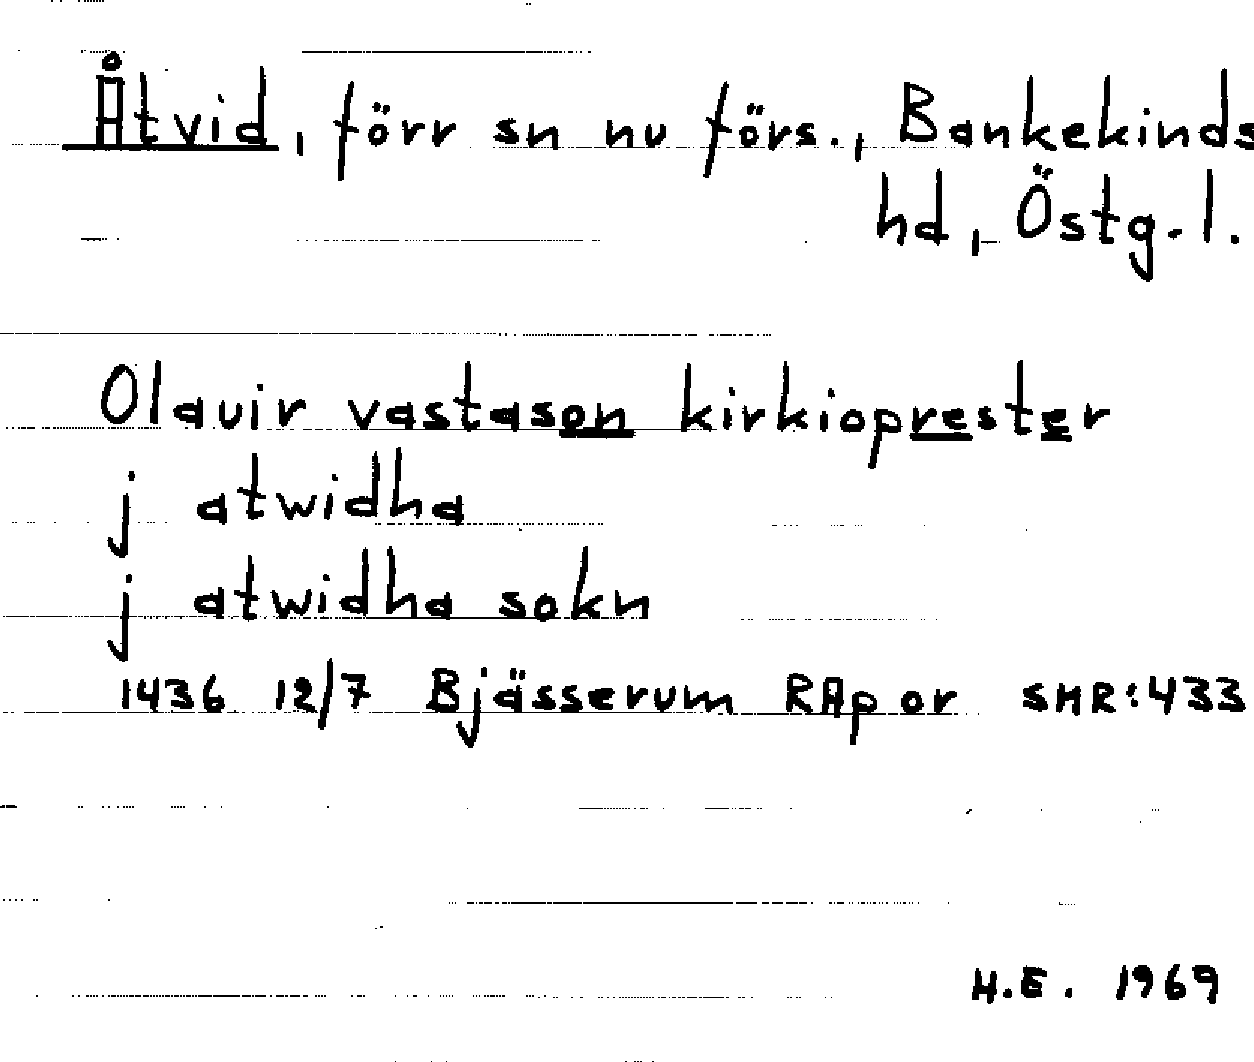 Åtvid, förr sn nu förs., Bankekinds
hd, Östg. l.
Olauir vastason kirkioprester
j atwidha
j atwidha sokn
1436 12/7 Bjässerum RAp or SMR:433
H.E. 1969